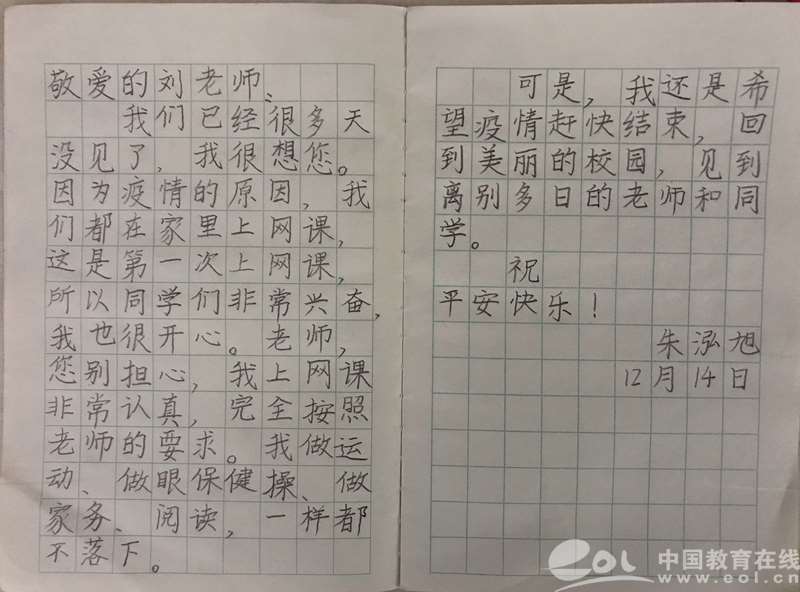 敬爱的刘老师、
我们已经很多天
没见了，我很想您。
因为疫情的原因，我
们都在家里上网课，
这是第一次上网课，
所以同学们非常兴奋，
我也很开心。老师，
您别担心，我上网课
非常认真，完全按照
老师的要求。我做运
动、做眼保健操、做
家务、阅读，一样都
不落下。
可是，我还是希
望疫情赶快结束，回
到美丽的校园，见到
离别多日的老师和同
学。
祝
平安快乐！
朱泓旭
12月14日
eol 中国教育在线
www.eol.cn